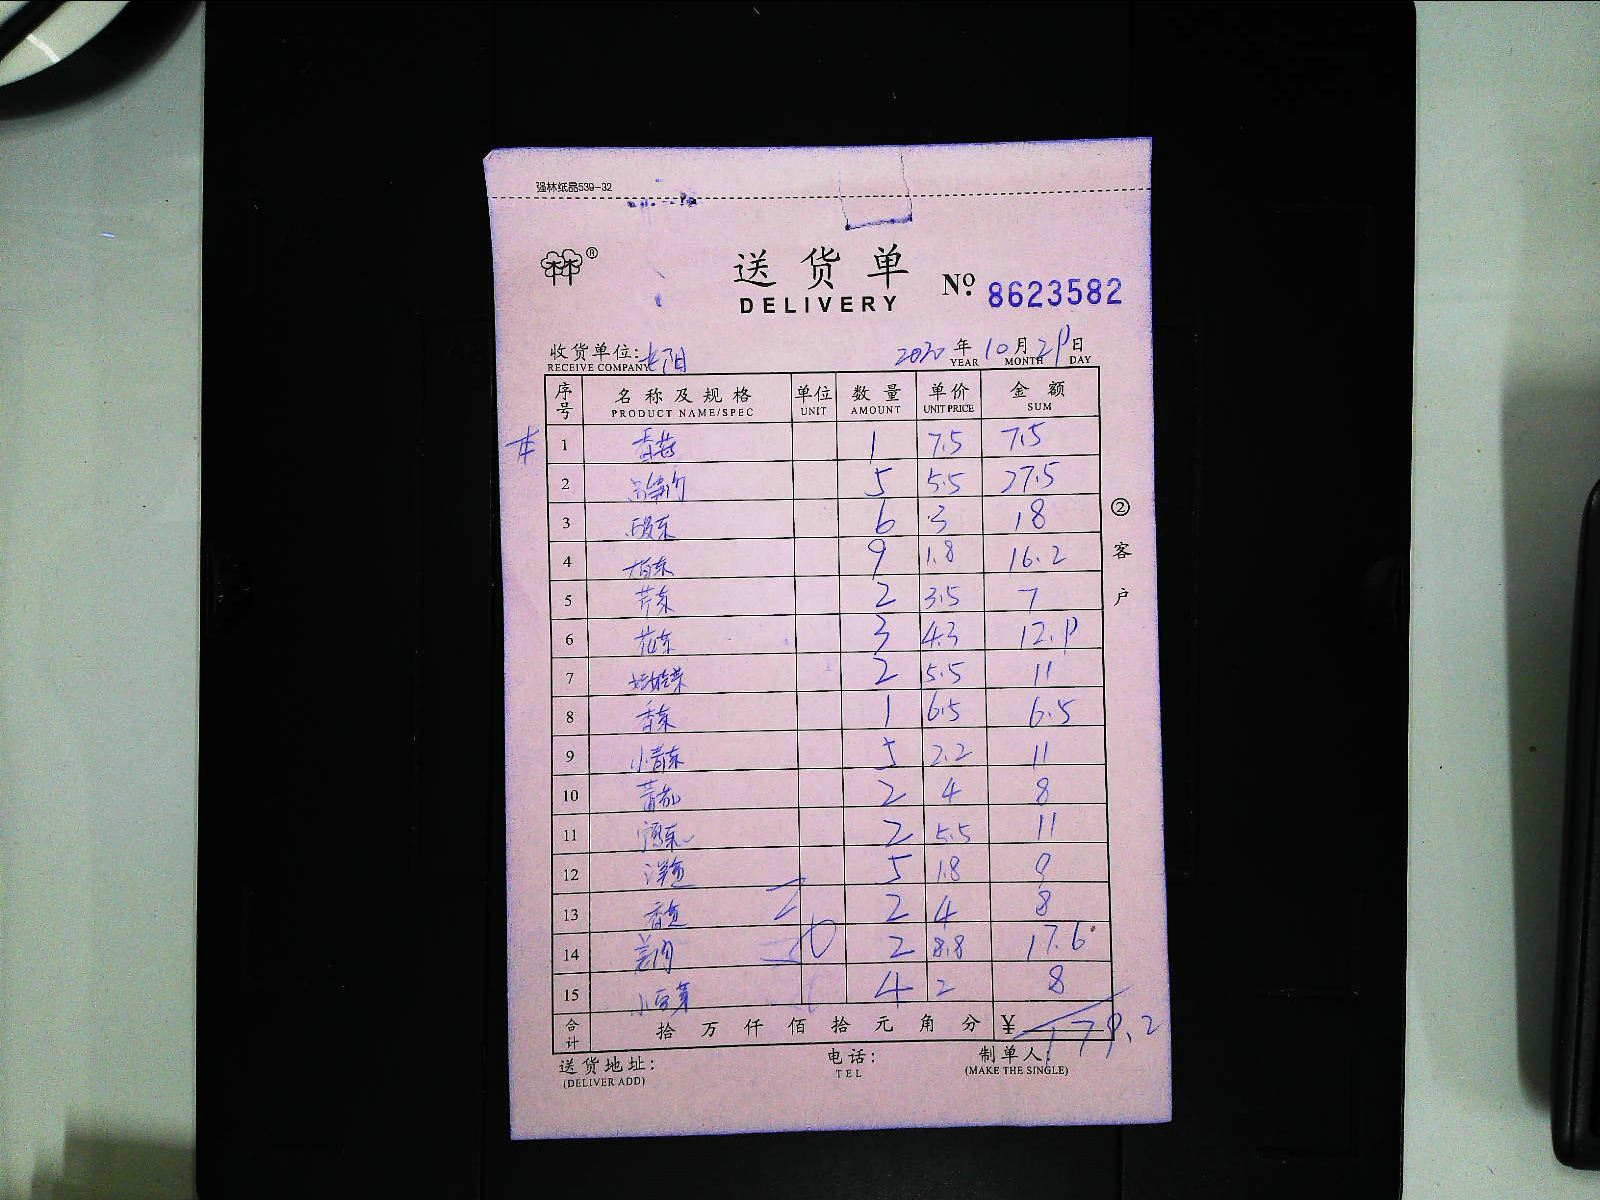 强林纸品539-32
®
送货单
DELIVERY
No. 8623582
收货单位: 长阳 2020年10月29日
RECEIVE COMPANY YEAR MONTH DAY
序号 名称及规格 单位 数量 单价 金额
PRODUCT NAME/SPEC UNIT AMOUNT UNIT PRICE SUM
1 香菇 1 7.5 7.5
2 5 5.5 27.5
3 6 3 18
4 9 1.8 16.2
5 芹菜 2 3.5 7
6 花菜 3 4.3 12.9
7 2 5.5 11
8 香菜 1 6.5 6.5
9 小青菜 5 2.2 11
10 2 4 8
11 2 5.5 11
12 洋鱼 5 1.8 9
13 2 4 8
14 2 8.8 17.6
15 小豆芽 4 2 8
合计 拾万仟佰拾元角分 ¥ 179.2
送货地址: 电话: 制单人:
(DELIVER ADD) TEL (MAKE THE SINGLE)
②客户